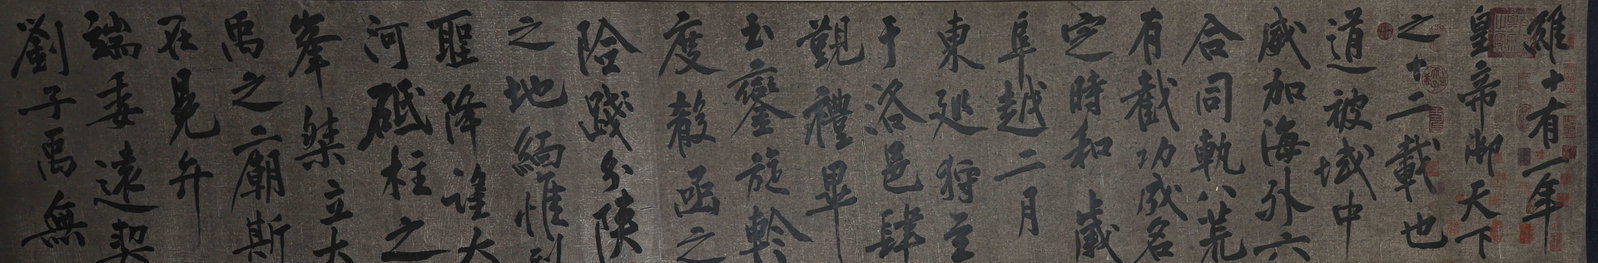 維十有一年
皇帝御天下
之十二載也
道被域中
威加海外六
合同軌八荒
有截功成名
定時和歲
阜越二月
東巡狩至
于洛邑肆
覲禮畢
玉鑾旋軫
度殽函之
險踐分陝
之地緬惟列
聖降望大
河砥柱之
峯桀立大
禹之廟斯
在冕弁
端委遠契
劉子禹無